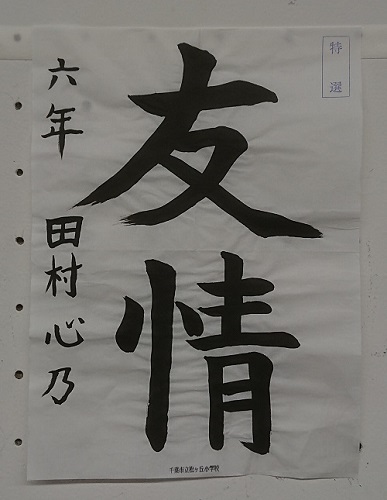 特選
友情
六年 田村心乃
千葉市立松ヶ丘小学校